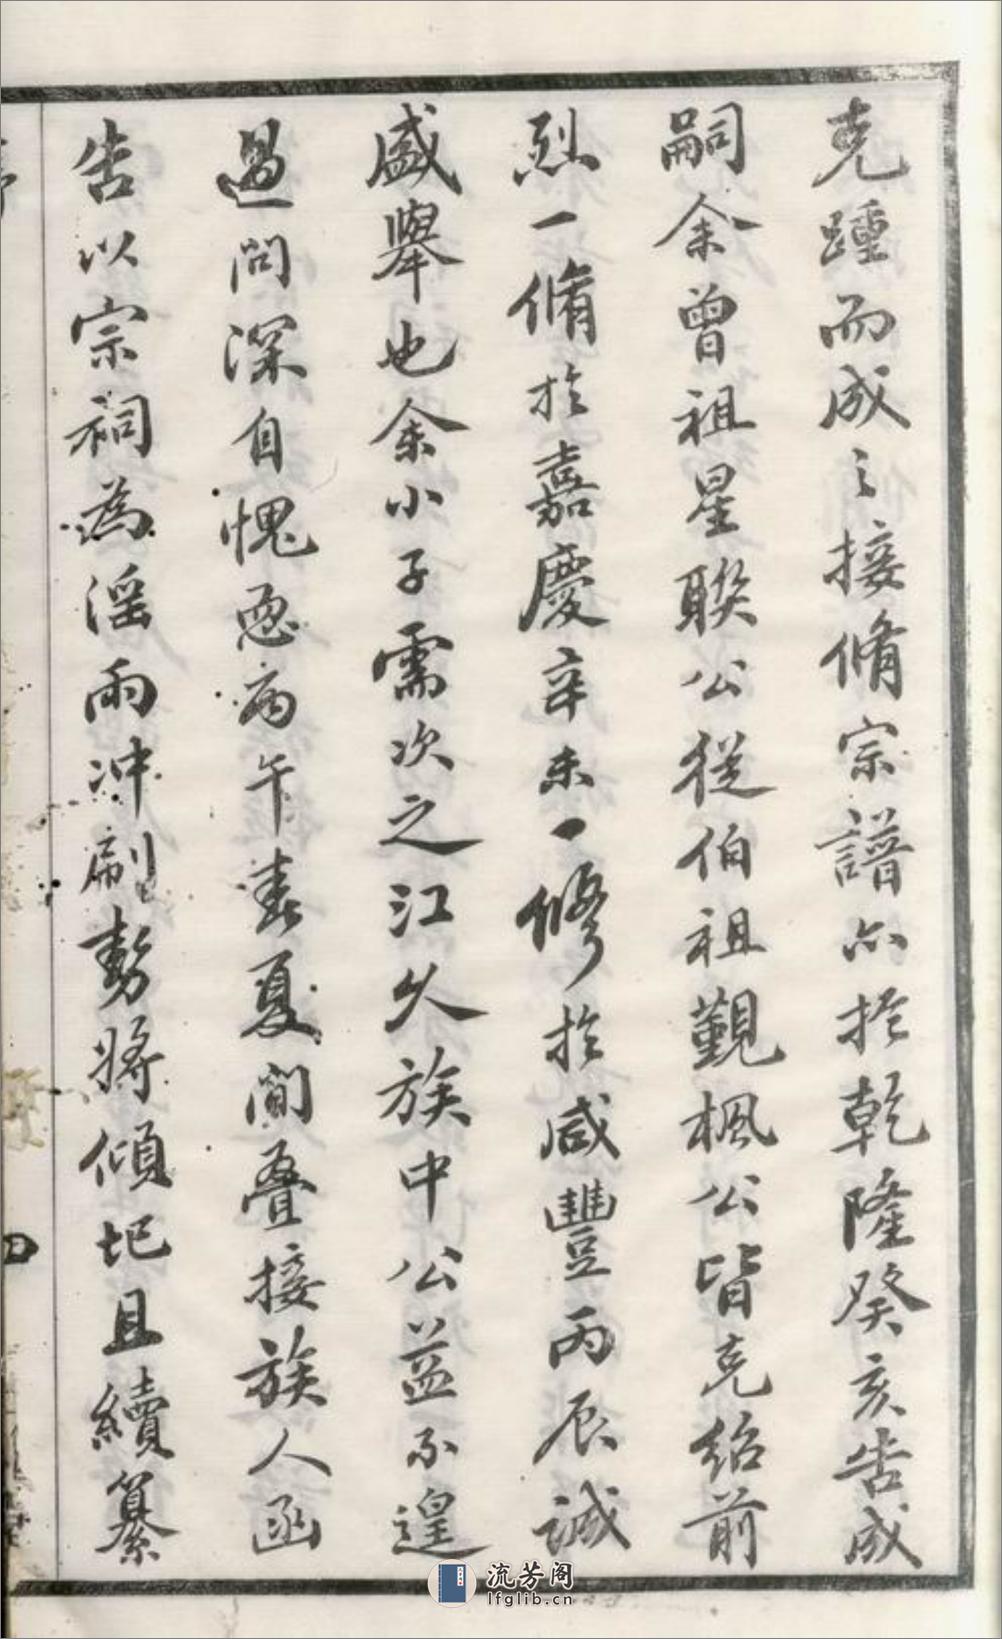 克踵而成之接脩宗譜亦於乾隆癸亥告成
嗣余曾祖星聯公從伯祖觐楓公皆克紹前
烈一脩於嘉慶辛未一修於咸豐丙辰誠
盛舉也余小子需次之江久族中公益不遑
過問深自愧恧丙午春夏間叠接族人函
告以宗祠為淫雨冲刷勢將傾圮且續纂
流芳阁
lfglib.cn